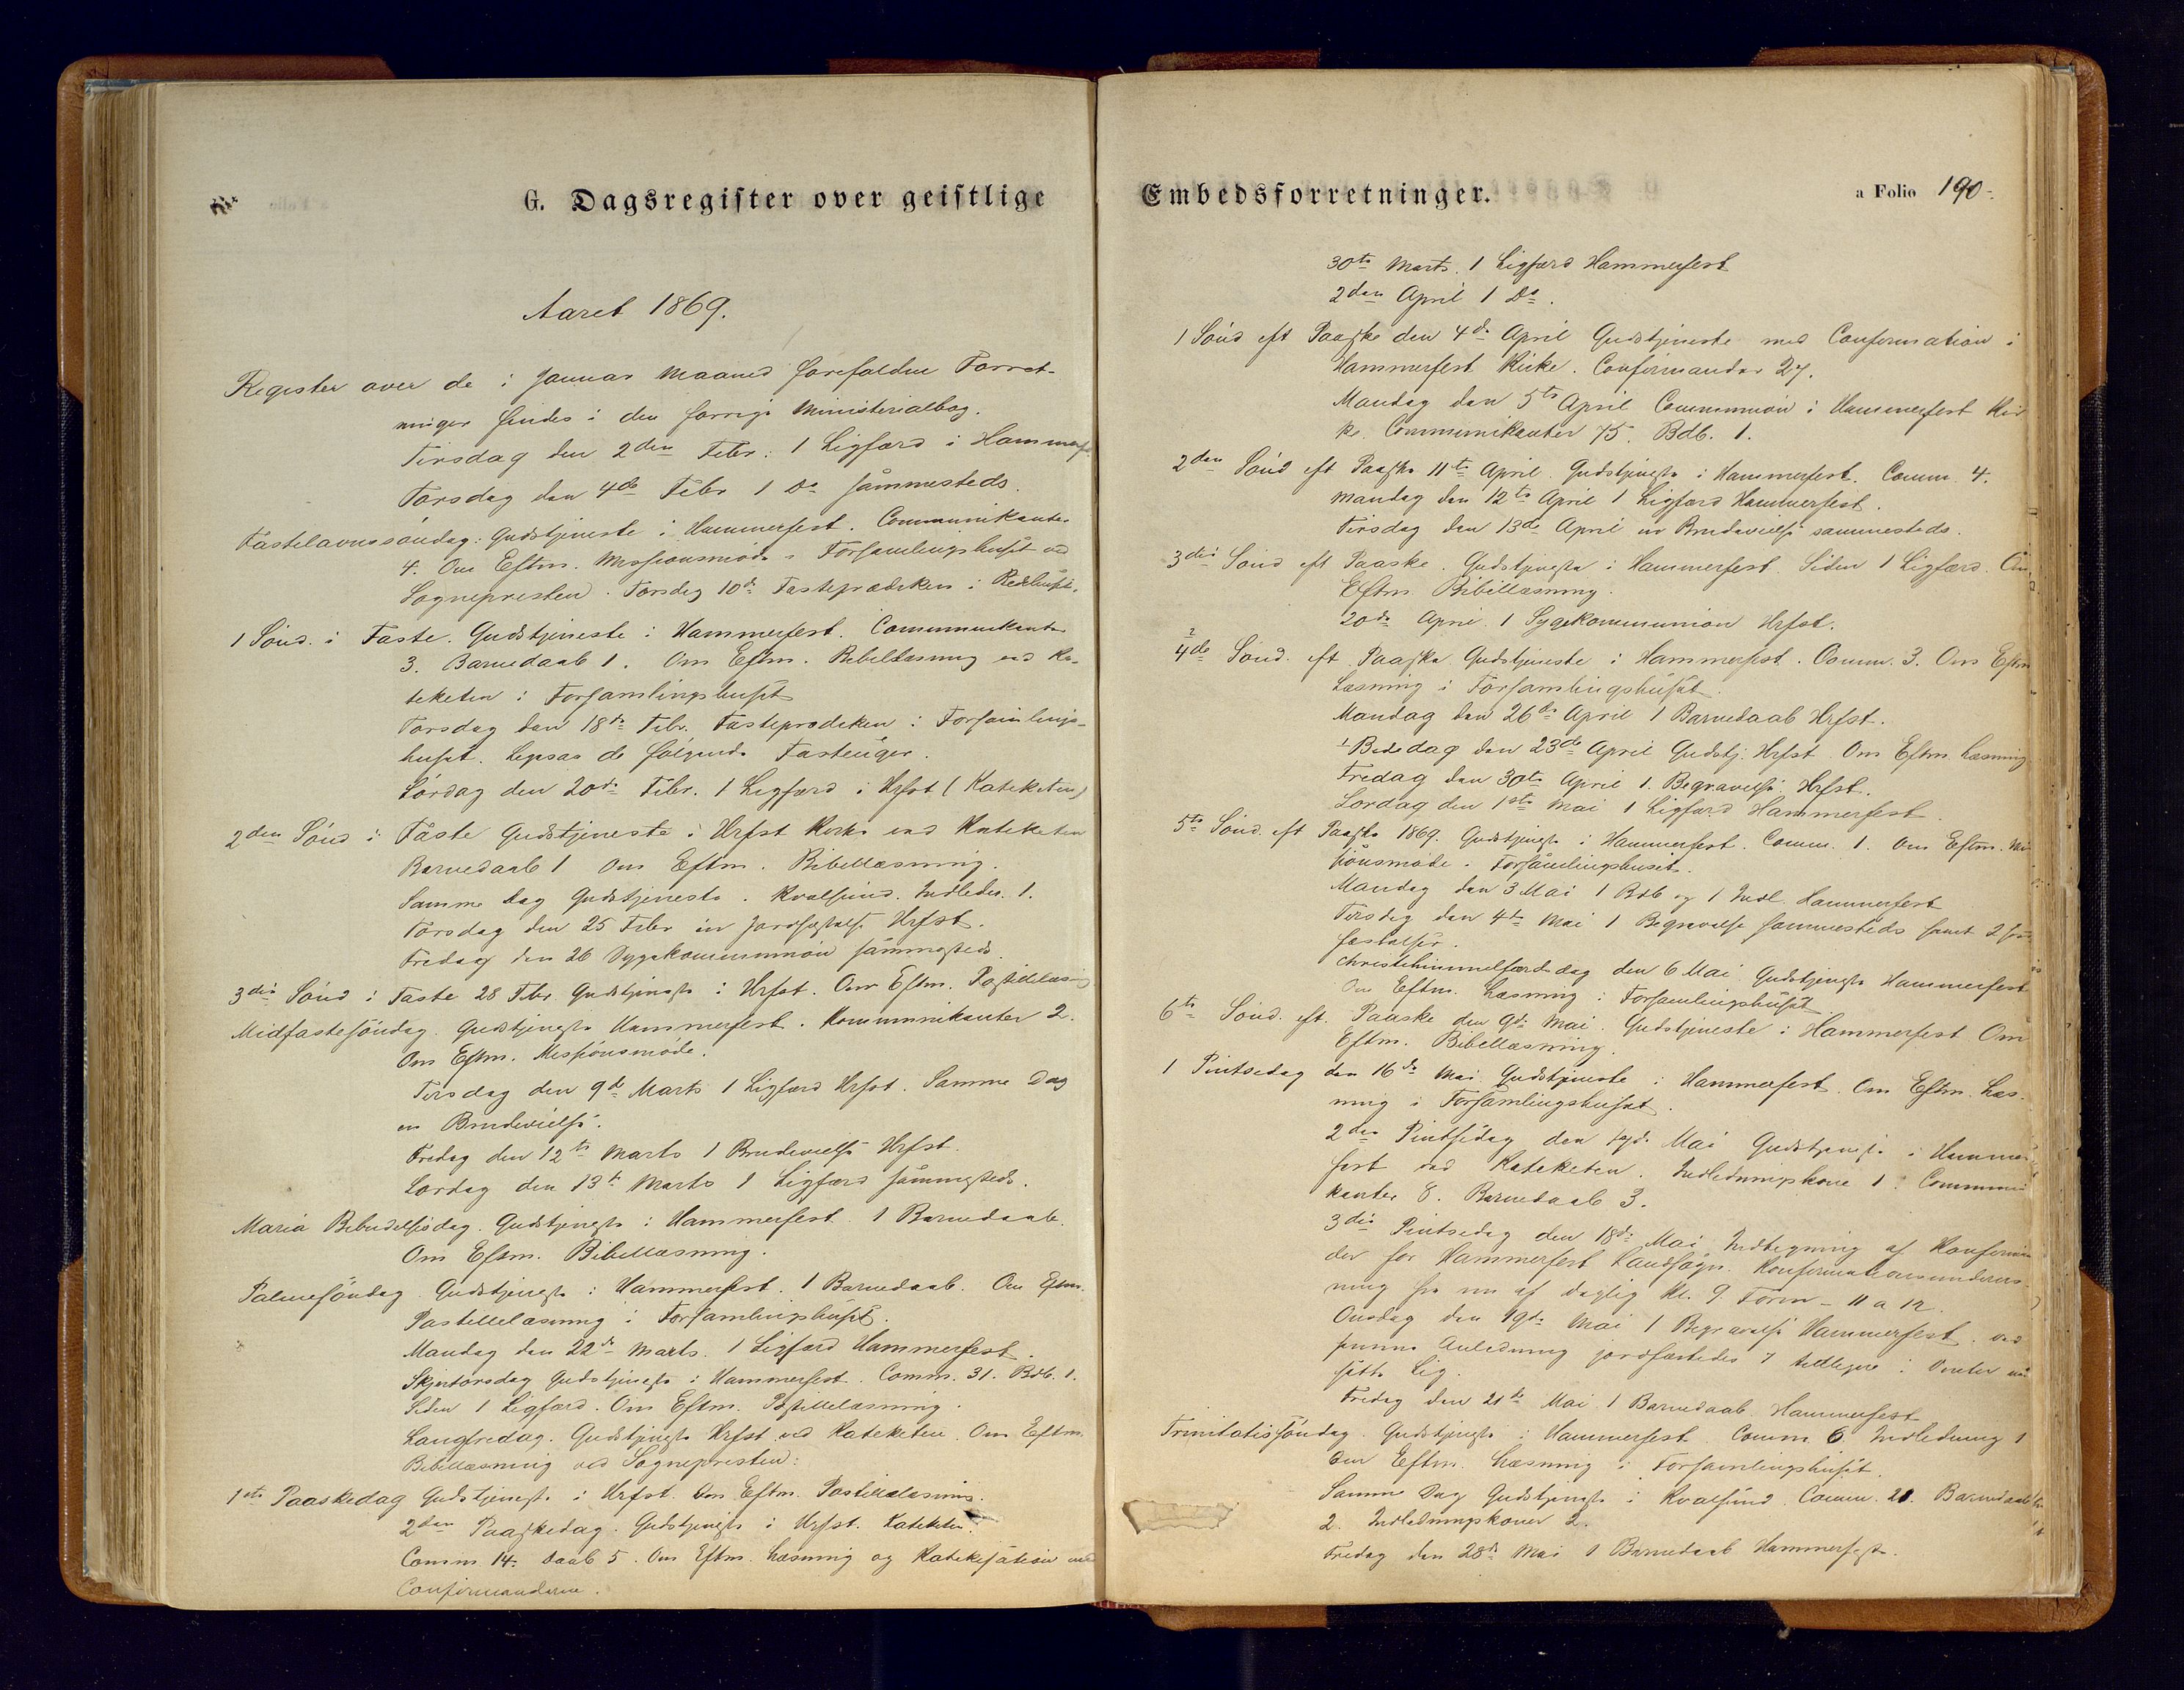 G. Dagsregister over geistlige
Aaret 1869.
Register over de i Januar Maaned forefaldne Forret-
ninger findes i den forrige Ministerialbog.
Tirsdag den 2den Febr: 1 Ligfærd i Hammerf.
Torsdag den 4de Febr 1 Do sammesteds.
Fastelavnssøndag: Gudstjeneste i Hammerfest. Communikanter
4. Om Eftm. Missionsmøde i Forsamlingshuset ved
Sognepresten. Torsdag 10de Fasteprædiken i
1 Sönd. i Faste. Gudstjeneste i Hammerfest. Communikanter
3. Barnedaab 1. Om Eftm. Bibellæsning ved Ka-
teketen i Forsamlingshuset
Torsdag den 18de Febr. Fasteprædiken i Forsamlings-
huset. Ligesaa de følgende Fasteuger.
Lördag den 20de Febr. 1 Ligfærd i Hrfst (Kateketen)
2den Sönd i Faste Gudstjeneste i Hrfst Kirke ved Kateketen
Barnedaab 1 Om Eftm. Bibellæsning.
Samme Dag Gudstjeneste i Kvalsund. Indleder. 1.
Torsdag den 25 Febr en Jordfæstelse Hrfst.
Fredag den 26 Sygekommunion sammesteds.
3die Sönd i Faste 28 Febr. Gudstjeneste i Hrfst. Om Eftm. Postillelæsn
Midfastesöndag. Gudstjeneste Hammerfest. Kommunikanter 2.
Om Eftm. Missionsmöde.
Tirsdag den 9de Marts 1 Ligfærd Hrfst. Samme Dag
en Brudevielse.
Fredag den 12te Marts 1 Brudevielse Hrfst.
Lordag den 13te Marts 1 Ligfærd sammesteds.
Maria Bebudelsesdag. Gudstjeneste i Hammerfest. 1 Barnedaab.
Om Eftm. Bibellæsning.
Palmesöndag. Gudstjeneste i Hammerfest. 1 Barnedaab. Om Eftm.
Postillelæsning i Forsamlingshuset.
Mandag den 22de Marts. 1 Ligfærd Hammerfest.
Skjertorsdag Gudstjeneste i Hammerfest. Comm. 31. Bdb. 1.
Siden 1 Ligfærd. Om Eftm. Postillelæsning.
Langfredag. Gudstjeneste Hrfst ved Kateketen. Om Eftm.
Bibellæsning ved Sognepresten:
1ste Paaskedag Gudstjeneste i Hrfst. Om Eftm. Postillelæsning.
2den Paaskedag. Gudstjeneste i Hrfst. Kateketen.
Comm 14. Daab 5. Om Eftm. Læsning og Katekisation med
Confirmanderne.
Embedsforretninger.
a Folio 190
30te Marts. 1 Ligfærd Hammerfest
2den April 1 Do.
1 Sönd eft Paaske den 4de April Gudstjeneste med Confirmation i
Hammerfest Kirke. Confirmander 27.
Mandag den 5te April Communion i Hammerfest Kir
ke. Communikanter 75. Bdb. 1.
2den Sönd eft Paaske 11te April. Gudstjeneste i Hammerfest. Comm. 4.
Mandag den 12te April 1 Ligfærd Hammerfest.
Tirsdag den 13de April en Brudevielse sammesteds.
3die Sönd eft Paaske. Gudstjeneste i Hammerfest. Siden 1 Ligfærd. Om
Eftm. Bibellæsning.
20de April 1 Sygekommunion Hrfst.
2
4de Sönd. eft Paaske Gudstjeneste i Hammerfest. Comm. 3. Om Eftm
Læsning i Forsamlingshuset.
Mandag den 26de April 1 Barnedaab Hrfst.
1 Bededag den 23de April Gudstj. Hrfst. Om Eftm. Læsning
Fredag den 30te April 1. Begravelse. Hrfst.
Lordag den 1ste Mai 1 Ligfærd Hammerfest.
5te Sönd. eft Paaske 1869. Gudstjeneste i Hammerfest. Comm. 1. Om Eftm. Mi
sionsmøde i Forsamlingshuset.
Mandag den 3 Mai 1 Bdb og 1 Indl. Hammerfest
Tirsdag den 4de Mai 1 Begravelse sammesteds samt 2 Jord
fæstelser.
Christihimmelfærdsdag den 6 Mai. Gudstjeneste Hammerfest
Om Eftm. Læsning i Forsamlingshuset.
6te Sönd. eft. Paaske den 9de Mai. Gudstjeneste i Hammerfest Om
Eftm. Bibellæsning.
1 Pintsedag den 16de Mai Gudstjeneste i Hammerfest. Om Eftm. Læs-
ning i Forsamlingshuset.
2den Pintsedag den 17de Mai Gudstjeneste i Hammer
fest ved Kateketen. Indledningskone 1. Communi
kanter 8. Barnedaab 3.
3die Pintsedag den 18de Mai Indtegning af Konfirman
der for Hammerfest Landsogn. Konfirmationsundervis
ning fra nu af daglig Kl. 9 Form - 11 a 12.
Onsdag den 19de Mai 1 Begravelse Hammerfest. ved
samme Anledning jordfæstedes 7 tidligere i Vinter
satte Lig.
Fredag den 21de Mai 1 Barnedaab Hammerfest
Trinitatissöndag. Gudstjeneste i Hammerfest. Comm. 6. Indledning 1
Om Eftm. Læsning i Forsamlingshuset.
Samme Dag Gudstjeneste i Kvalsund. Comm. 21. Barnedaab
2. Indledningskoner 2.
Fredag den 28de Mai 1 Barnedaab Hammerfest.